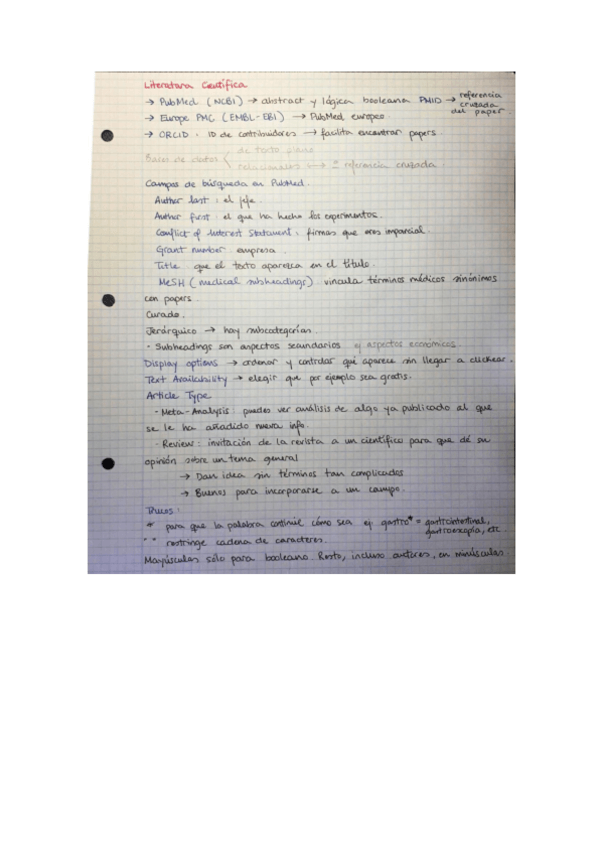 Literatura Científica
→ PubMed (NCBI) → abstract y lógica booleana PMID → referencia cruzada del paper.
→ Europe PMC (EMBL-EBI) → PubMed europeo.
→ ORCID: ID de contribuidores → facilita encontrar papers.
Bases de datos { de texto plano
relacionales → referencia cruzada
Campos de búsqueda en PubMed.
Author last: el jefe.
Author first: el que ha hecho los experimentos.
Conflict of Interest Statement: firmas que eres imparcial.
Grant number: empresa
Title: que el texto aparezca en el título.
MeSH (medical subheadings) vincula términos médicos sinónimos
con papers.
Curado.
Jerárquico → hay subcategorías.
· Subheadings son aspectos secundarios ej aspectos económicos.
Display options → ordenar y controlas qué aparece sin llegar a clickear.
Text Availability → elegir que por ejemplo sea gratis.
Article Type
- Meta-Analysis: puedes ver análisis de algo ya publicado al que
se le ha añadido nueva info.
- Review: invitación de la revista a un científico para que dé su
opinión sobre un tema general
→ Dan idea sin términos tan complicados
→ Buenos para incorporarse a un campo.
Trucos:
* para que la palabra continúe cómo sea ej: gastro* = gastrointestinal,
gastroscopia, etc
" " restringe cadena de caracteres.
Mayúsculas sólo para booleano. Resto, incluso autores, en minúsculas.